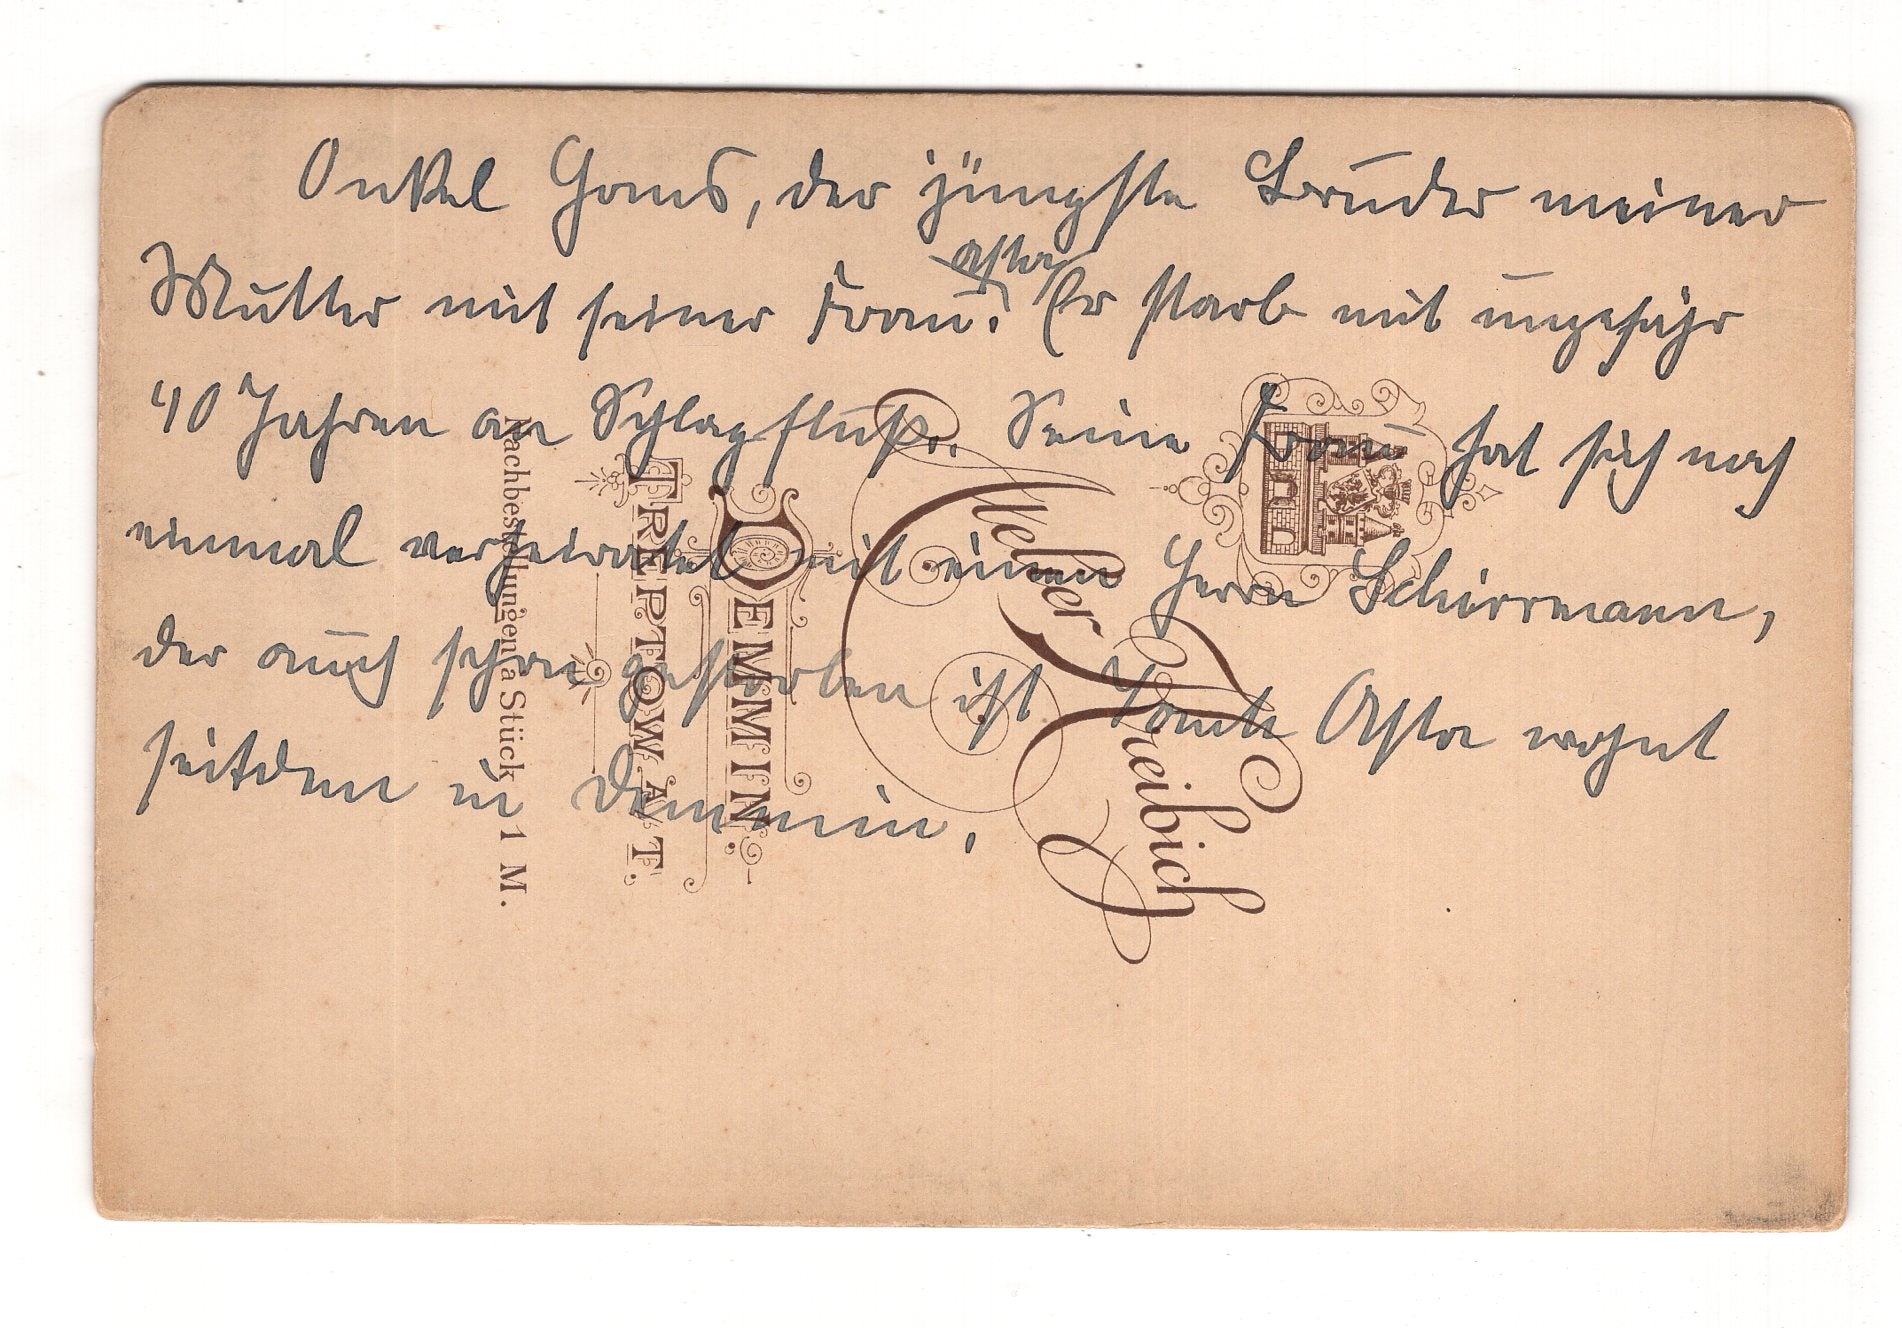 Onkel Hans, der jüngste Bruder meiner
Mutter mit seiner Frau. Asta Er starb mit ungefähr
40 Jahren an Schlagfluß. Seine Frau hat sich noch
einmal verheiratet mit einem Herrn Schirrmann,
der auch schon gestorben ist Tante Asta wohnt
seitdem in Demmin.
Weber Kreibich
DEMMIN.
TREPTOW A/T.
Nachbestellungen a Stück 1 M.